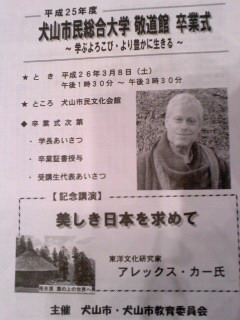 平成25年度
犬山市民総合大学 敬道館 卒業式
～ 学ぶよろこび・より豊かに生きる ～
★ と き 平成26年3月8日（土）
午後1時30分 ～ 午後3時30分
★ ところ 犬山市民文化会館
◆ 卒 業 式 次 第
・学長あいさつ
・卒業証書授与
・受講生代表あいさつ
【記念講演】
美しき日本を求めて
東洋文化研究家
アレックス・カー氏
主催 犬山市・犬山市教育委員会